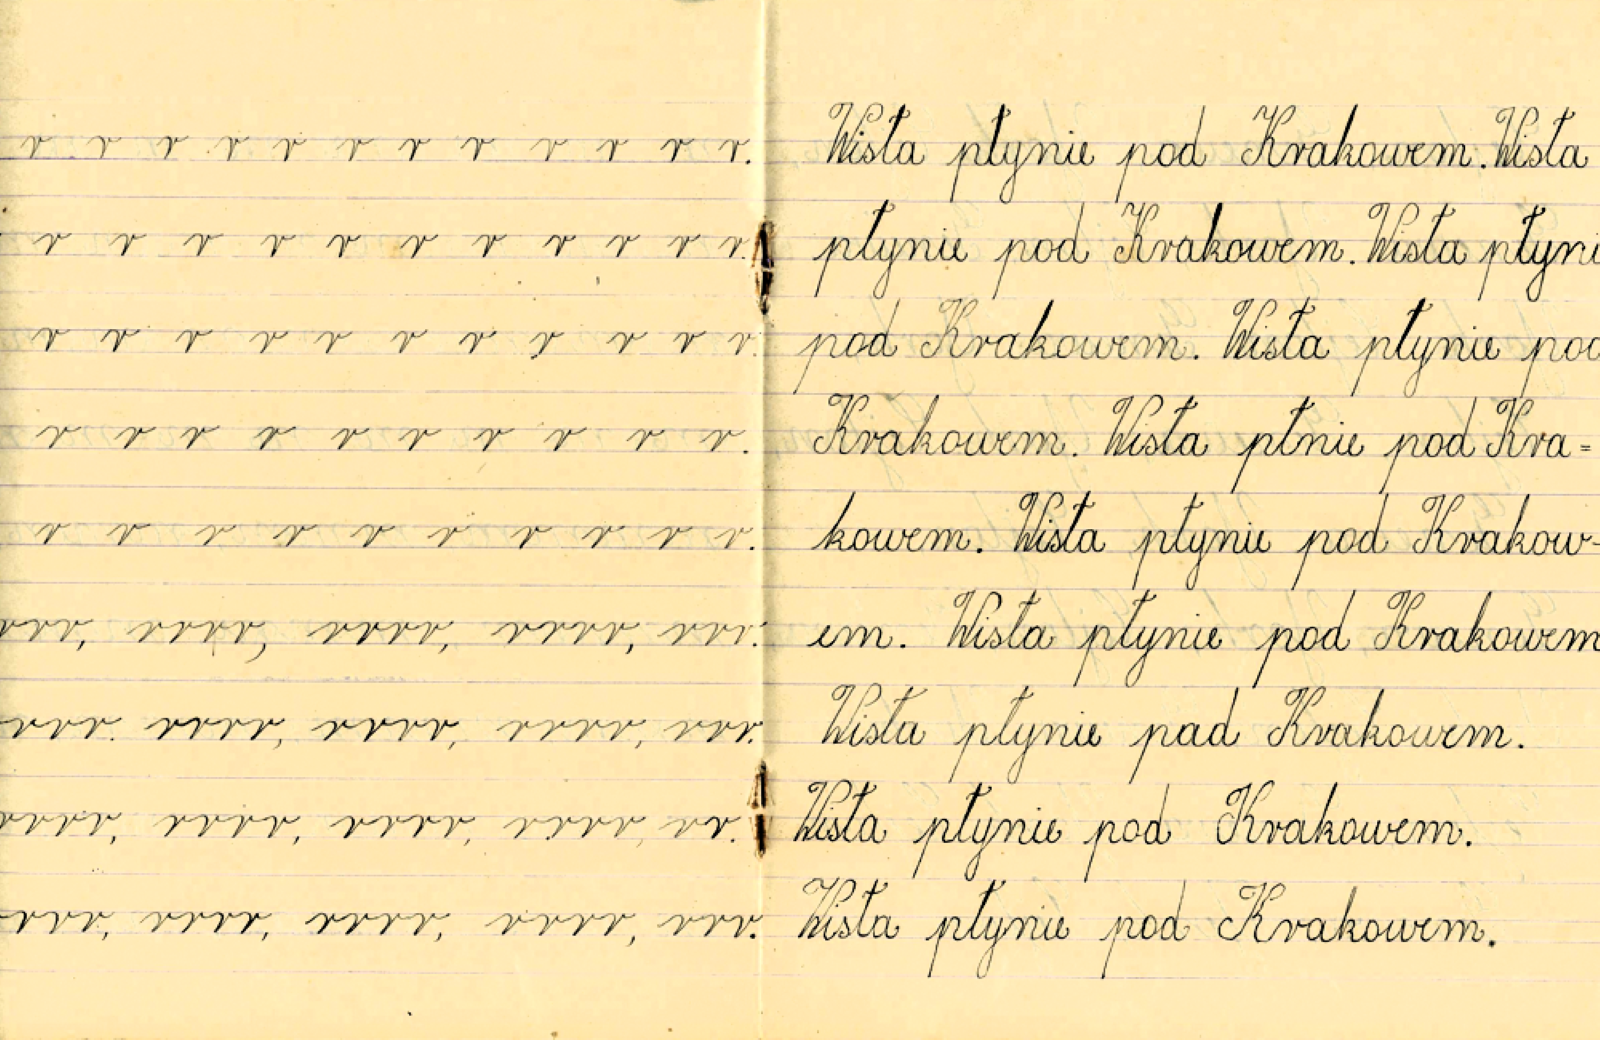 r r r r r r r r r r r r.
r r r r r r r r r r r.
r r r r r r r r r r r.
r r r r r r r r r r.
r r r r r r r r r r.
rrr, rrrr, rrrr, rrrr, rrr.
rrr. rrrr, rrrr, rrrr, rrr.
rrrr, rrrr, rrrr, rrrr, rr.
rrr, rrrr, rrrr, rrrr, rrr.
Wisła płynie pod Krakowem. Wisła
płynie pod Krakowem. Wisła płyni
pod Krakowem. Wisła płynie pod
Krakowem. Wisła płnie pod Kra=
kowem. Wisła płynie pod Krakow-
em. Wisła płynie pod Krakowem
Wisła płynie pad Krakowem.
Wisła płynie pod Krakowem.
Wisła płynie pod Krakowem.